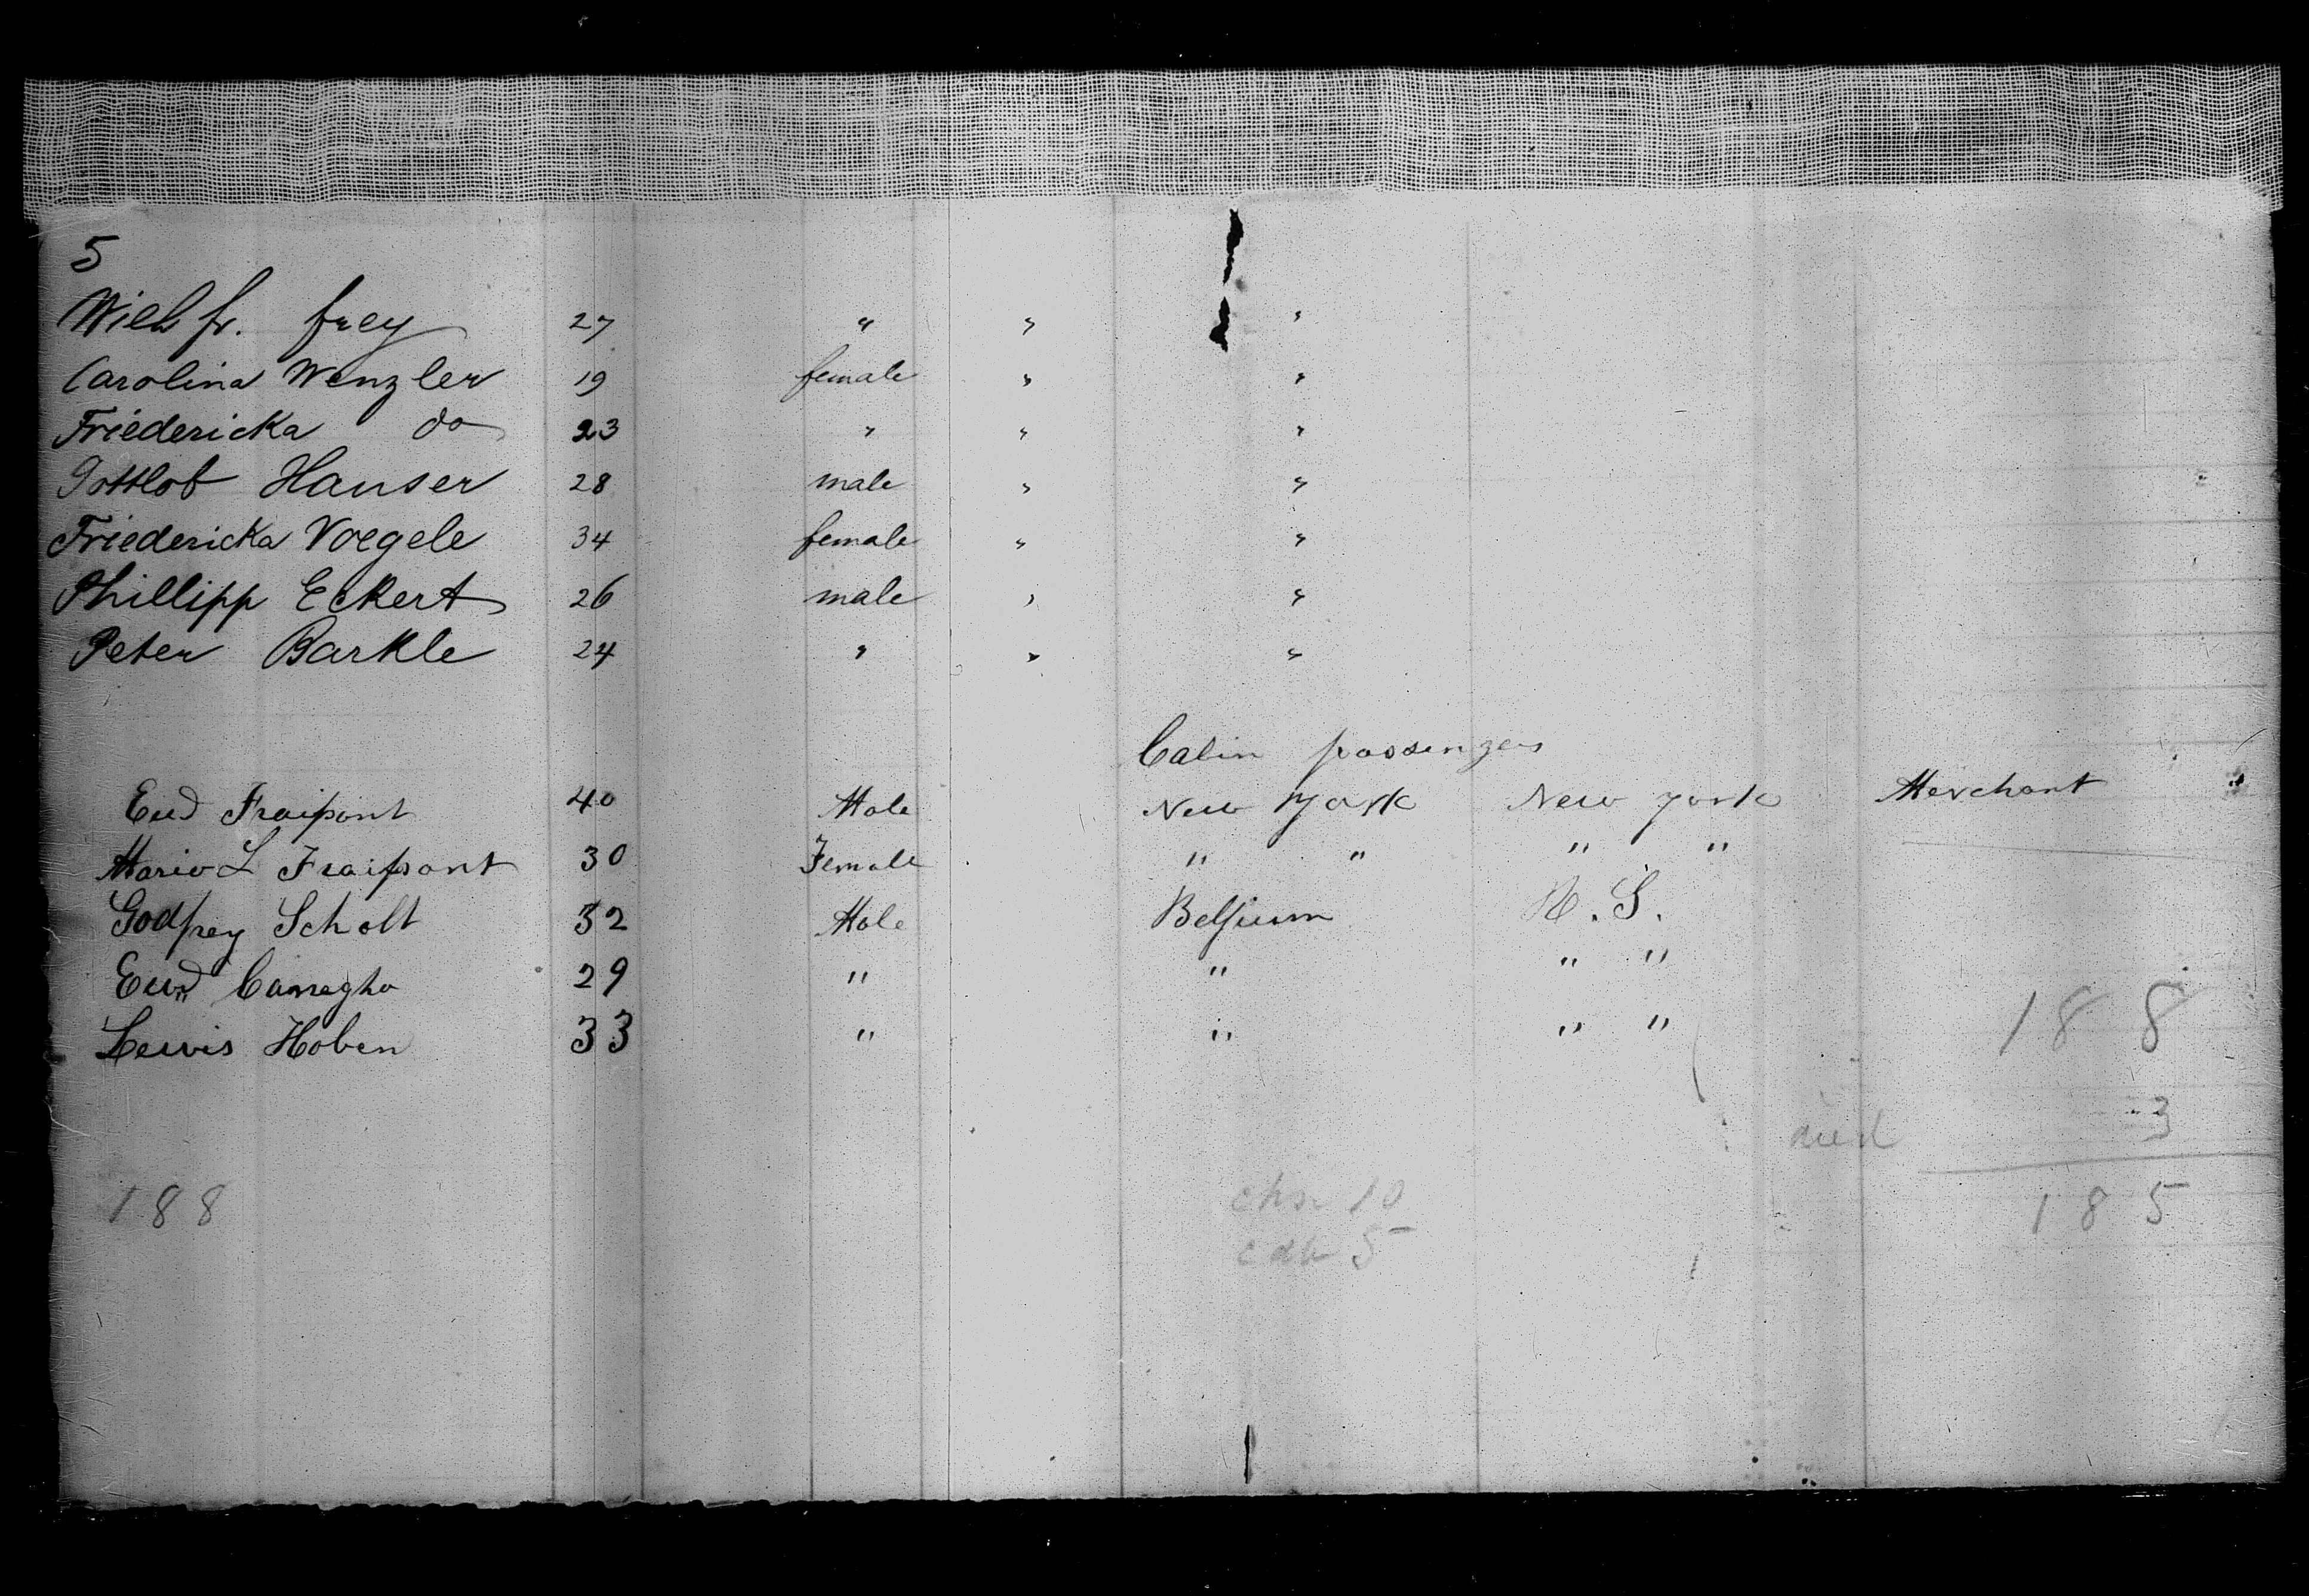 5
Wilh fr. frey 27 " " "
Carolina Wenzler 19 female " "
Friedericka do 23 " " "
Gottlob Hauser 28 male " "
Friedericka Voegele 34 female " "
Phillipp Eckert 26 male " "
Peter Barkle 24 " " "
Cabin passengers
Eud Fraipont 40 Male New York New York Merchant
Marie L Fraipont 30 Female " " " "
Godfrey Scholt 32 Male Belgium U. S.
Eud 29 " " " "
Lewis Hoben 33 " " " "
188
died 3
188 185
10
5